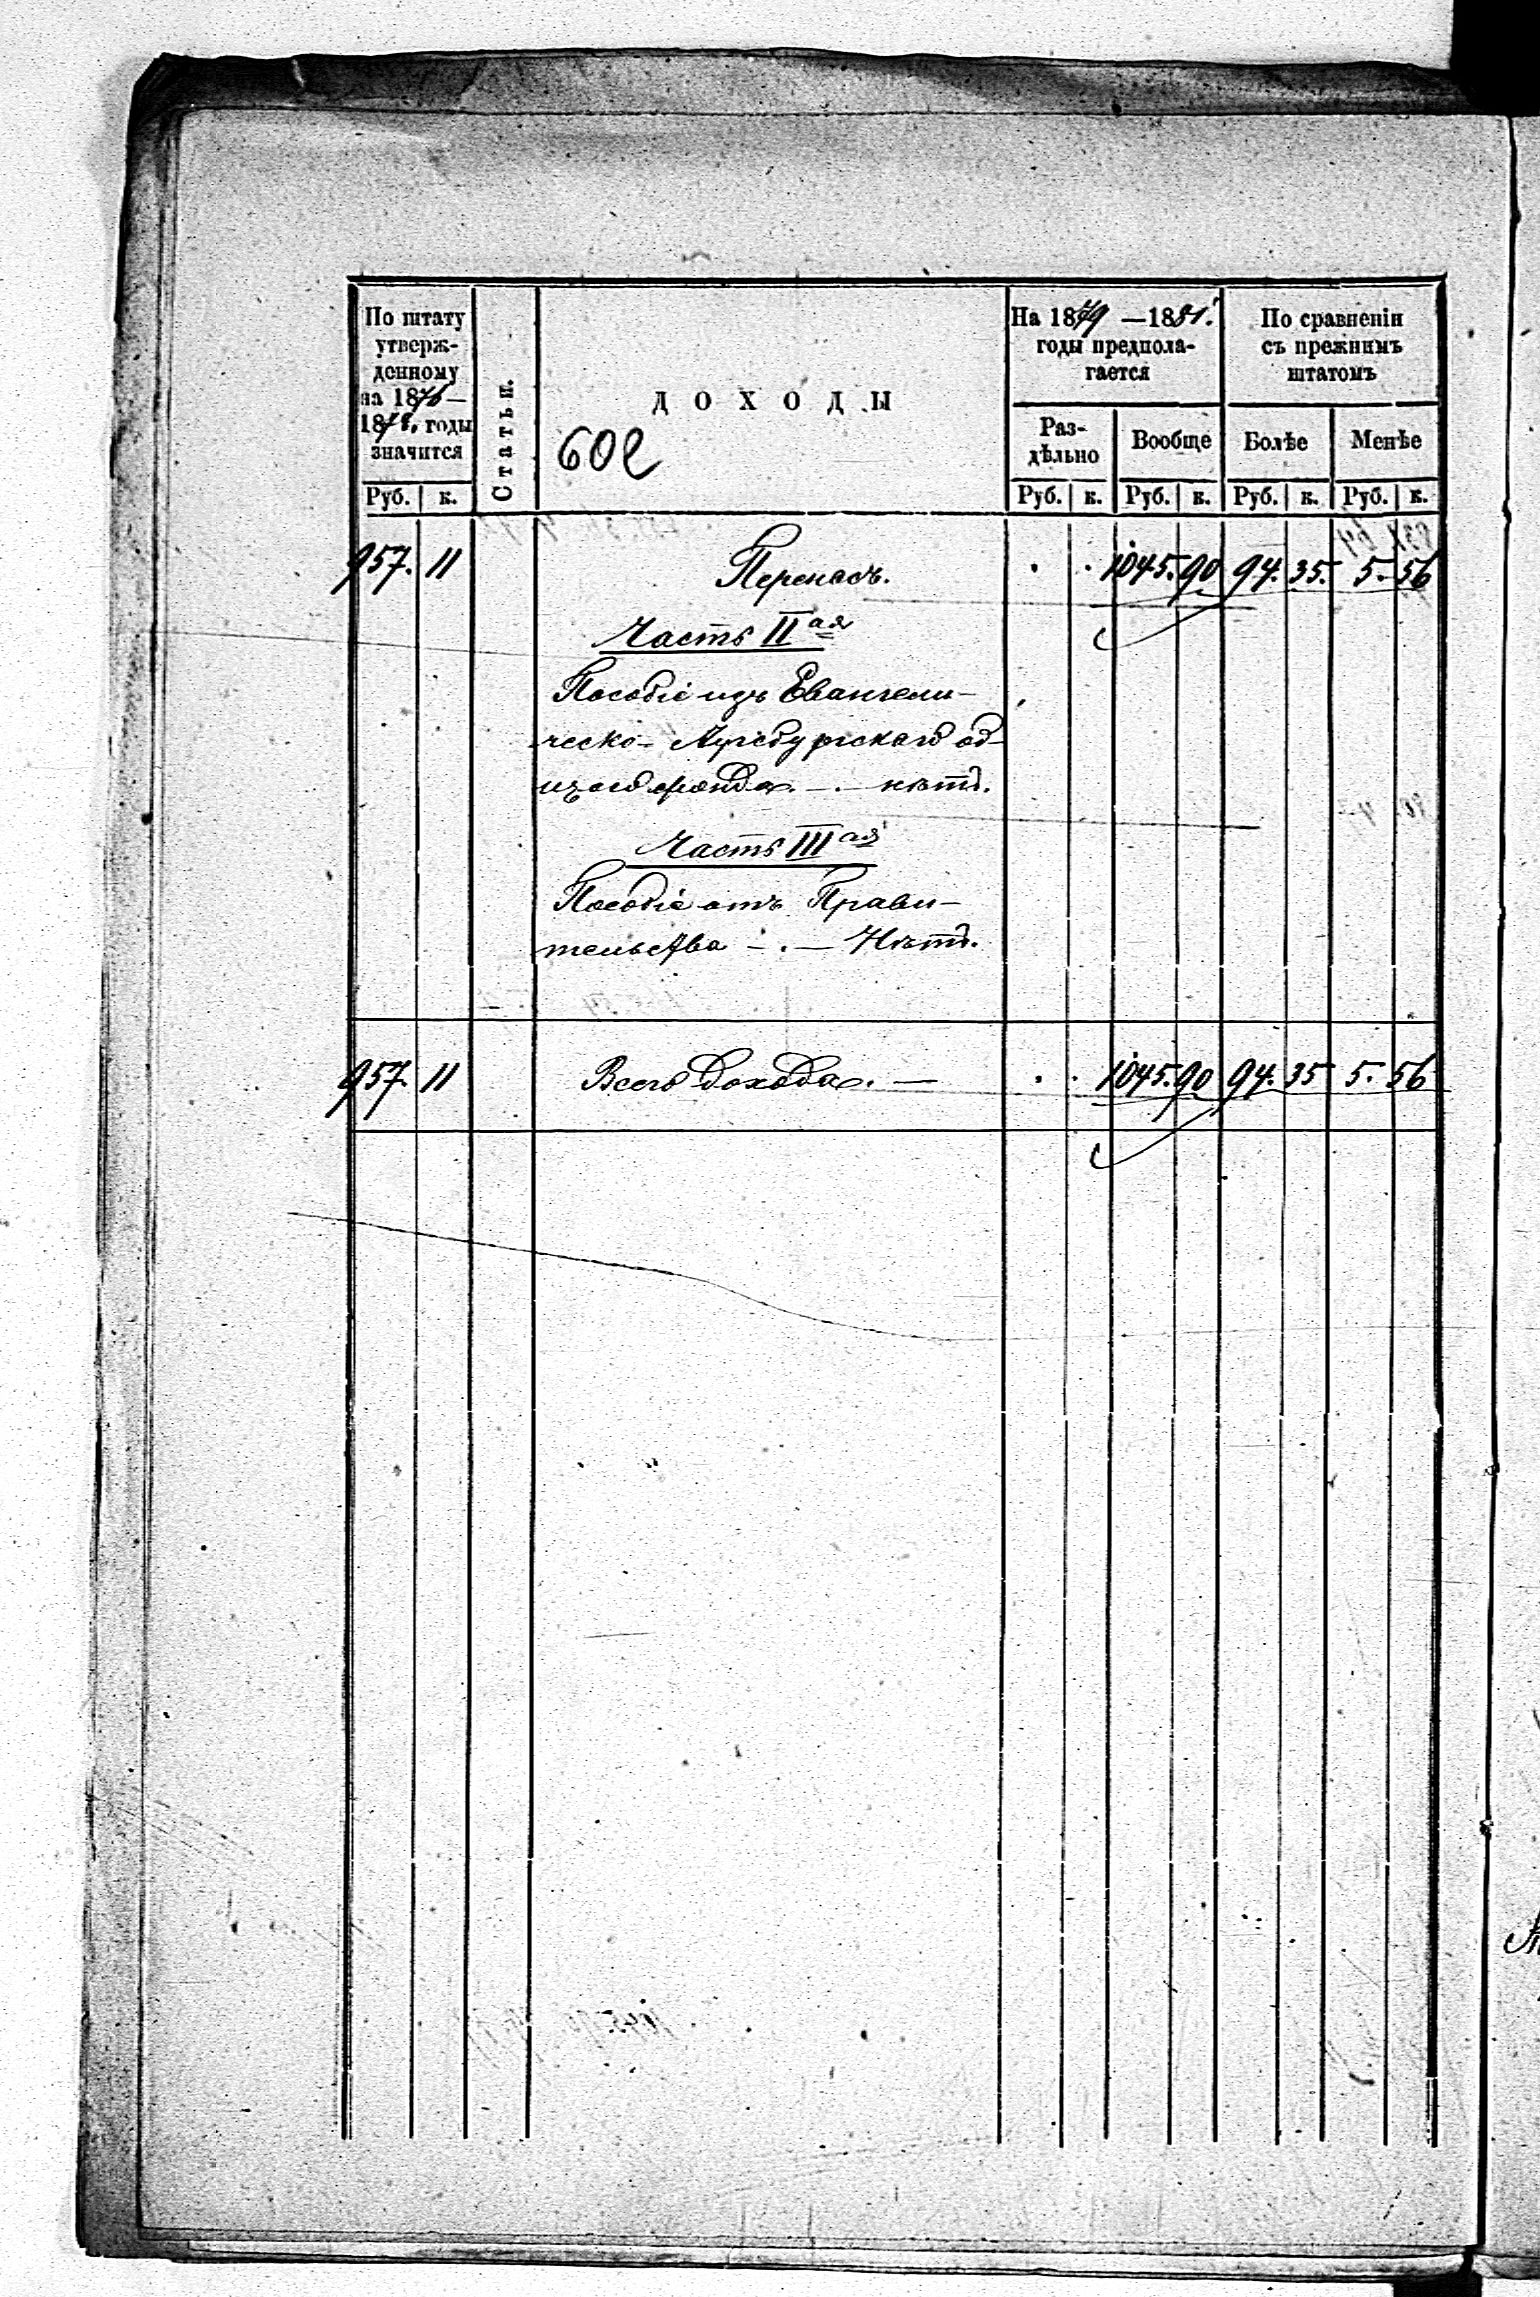 По штату
утверж-
денному
на 1876 —
1878. годы
значится
Руб. к.
Статьи.
ДОХОДЫ
602
На 1879 — 1881.
годы предпола-
гается
Раз-
дѣльно
Руб. к.
Вообще
Руб. к.
По сравненіи
съ прежнимъ
штатомъ
Болѣе
Руб. к.
Менѣе
Руб. к.
957. 11 Переносъ. 1045. 90 94. 35. 5. 56
Часть II ая
Пособіе изъ Евангели-
ческо- Аугсбургскаго об-
щаго фонда. — . — нѣтъ.
Часть III ая
Пособіе отъ Прави-
тельства — . — Нѣтъ.
957. 11 Всего дохода. — 1045. 90 94. 35 5. 56